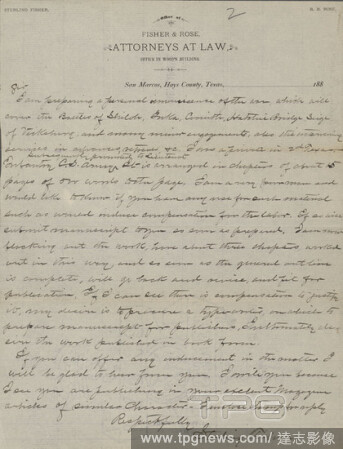 STERLING FISHER.
2
B. B. ROSE.
FISHER & ROSE,
ATTORNEYS AT LAW,
OFFICE IN WOOD'S BUILDING.
San Marcos, Hays County, Texas, 188
Sir
I am preparing a personal reminiscence of the war, which will
cover the Battles of Shiloh, Iuka, Corinth, Hatchie Bridge Siege
of Vicksburg and many minor engagements, also the
services in &c. I was a private in 2nd Texas
Infantry C.S. Army. It is arranged in chapters of about 5
pages of 200 words to the page. I am a very man and
would like to know if you have any use for such material
such as would induce compensation for the labor. If so will
submit manuscript to you as soon as prepared. I am now
blocking out the work, have about three chapters worked
out in this way and as soon as the general outline
is complete, will go back and revise, and fit for
publication. If I can see there is compensation to justify
it, my desire is to procure a typewriter, on which to
prepare manuscript for publishers. I ultimately
the work published in book form.
If you can offer any inducement in the matter I
will be glad to hear from you. I write you because
I see you are publishing in your excellent Magazine
articles of similar Character
Respectfully
www.tpgnews.com / 達志影像